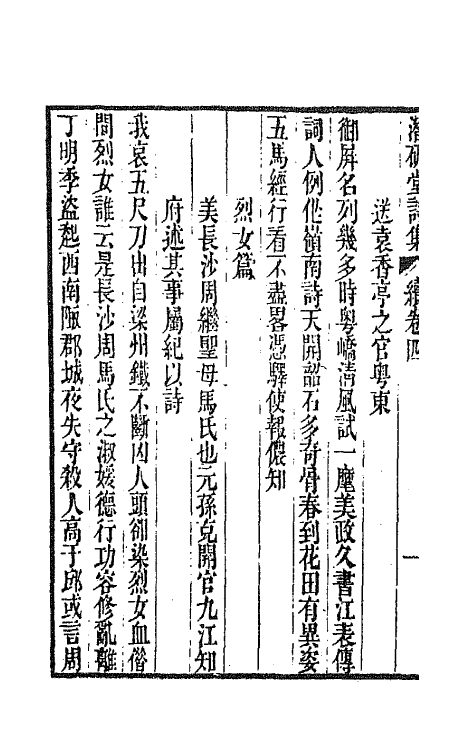 潛研堂詩集 續卷四 一
送袁香亭之官粤東
御屏名列幾多時粤嶠清風試一麾美政久書江表傳
詞人例作嶺南詩天開韶石多奇骨春到花田有異姿
五馬經行看不盡畧憑驛使報儂知
烈女篇
美長沙周繼聖母馬氏也元孫克開官九江知
府述其事屬紀以詩
我哀五尺刀出自梁州鐵不斷囚人頭卻染烈女血偕
問烈女誰云是長沙周馬氏之淑媛德行功容修亂離
丁明季盜起西南陬郡城夜失守殺人高于邱或言周